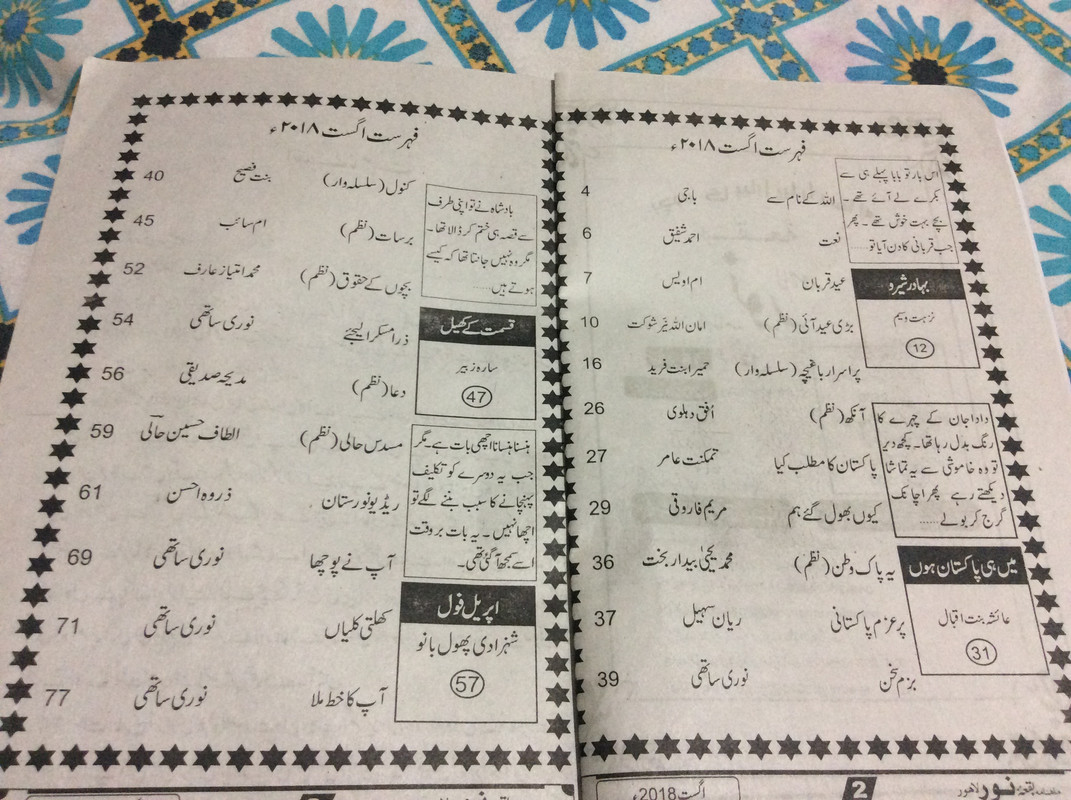 فہرست اگست ۲۰۱۸ء
اس بار تو بابا پہلے ہی سے
بکرے لے آئے تھے۔
بچے بہت خوش تھے۔ پھر
جب قربانی کا دن آیا تو
بہادر شیرہ
نزہت وسیم
12
دادا جان کے چہرے کا
رنگ بدل رہا تھا۔ کچھ دیر
تو وہ خاموشی سے یہ تماشا
دیکھتے رہے پھر اچانک
گرج کر بولے......
میں ہی پاکستان ہوں
عائشہ بنت اقبال
31
اللہ کے نام سے باجی 4
نعت احمد شفیق 6
عید قربان ام اویس 7
بڑی عید آئی (نظم) امان اللہ نیر شوکت 10
پراسرار باغیچہ (سلسلہ وار) حمیرا بنت فرید 16
آنکھ (نظم) اُفق دہلوی 26
پاکستان کا مطلب کیا تمکنت عامر 27
کیوں بھول گئے ہم مریم فاروقی 29
یہ پاک وطن (نظم) محمد یحیٰی بیدار بخت 36
پرعزم پاکستانی ریان سہیل 37
بزم سخن نوری ساتھی 39
نور لاہور 2 اگست 2018ء
فہرست اگست ۲۰۱۸ء
بادشاہ نے تو اپنی طرف
سے قصہ ہی ختم کر ڈالا تھا۔
مگر وہ نہیں جانتا تھا کہ کیسے
ہوتے ہیں......
قسمت کے کھیل
سارہ زبیر
47
ہنسنا ہنسانا اچھی بات ہے۔ مگر
جب یہ دوسرے کو تکلیف
پہنچانے کا سبب بننے لگے تو
اچھا نہیں۔ یہ بات بروقت
اسے سمجھ آ گئی تھی۔
اپریل فول
شہزادی پھول بانو
57
کنول (سلسلہ وار) بنت فصیح 40
برسات (نظم) ام سائب 45
بچوں کے حقوق (نظم) محمد امتیاز عارف 52
ذرا مسکرا لیجئے نوری ساتھی 54
دعا (نظم) مدیحہ صدیقی 56
مسدس حالی (نظم) الطاف حسین حالی 59
ریڈیو نورستان ذروہ احسن 61
آپ نے پوچھا نوری ساتھی 69
کھلتی کلیاں نوری ساتھی 71
آپ کا خط ملا نوری ساتھی 77